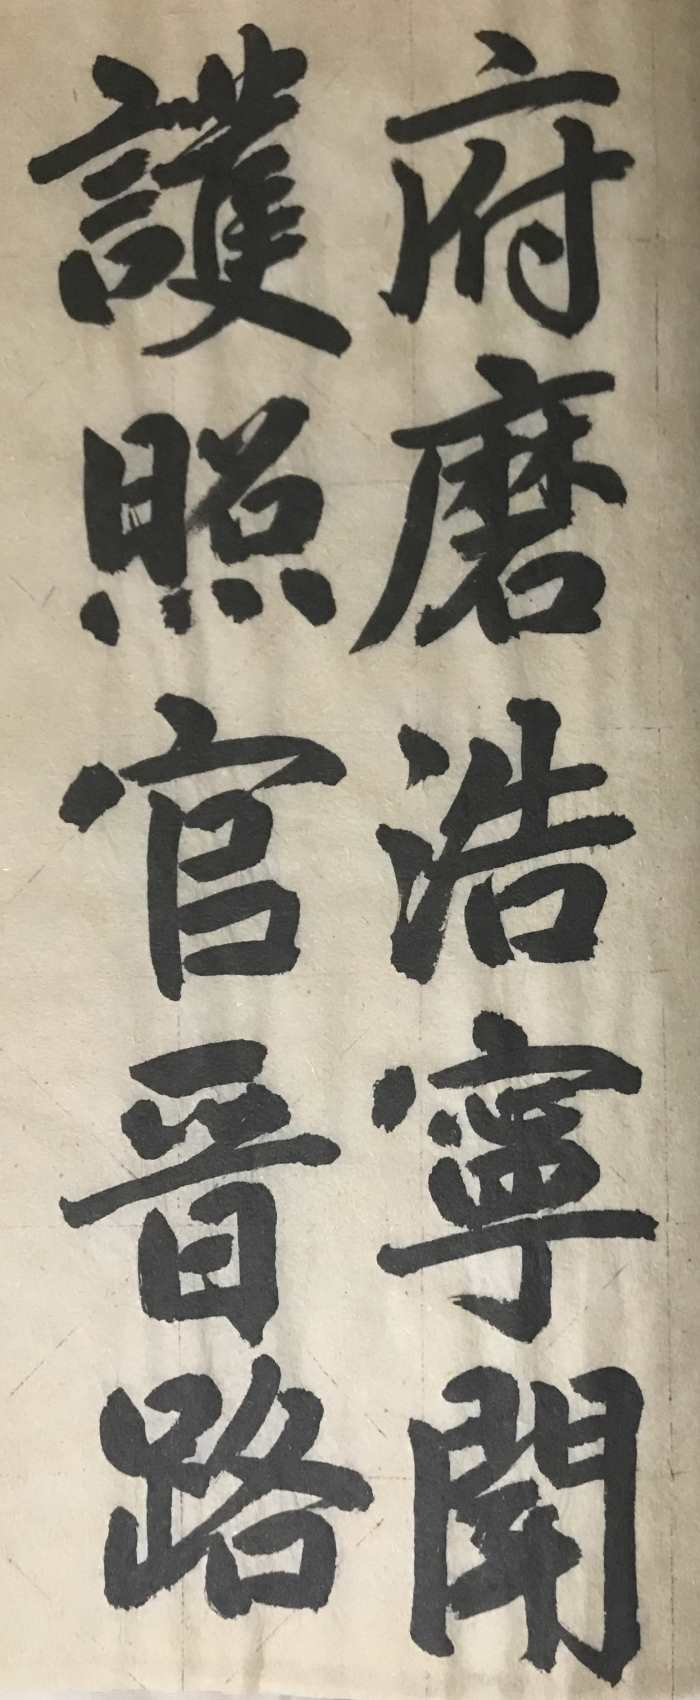 府磨浩寧聞
護照官晉路